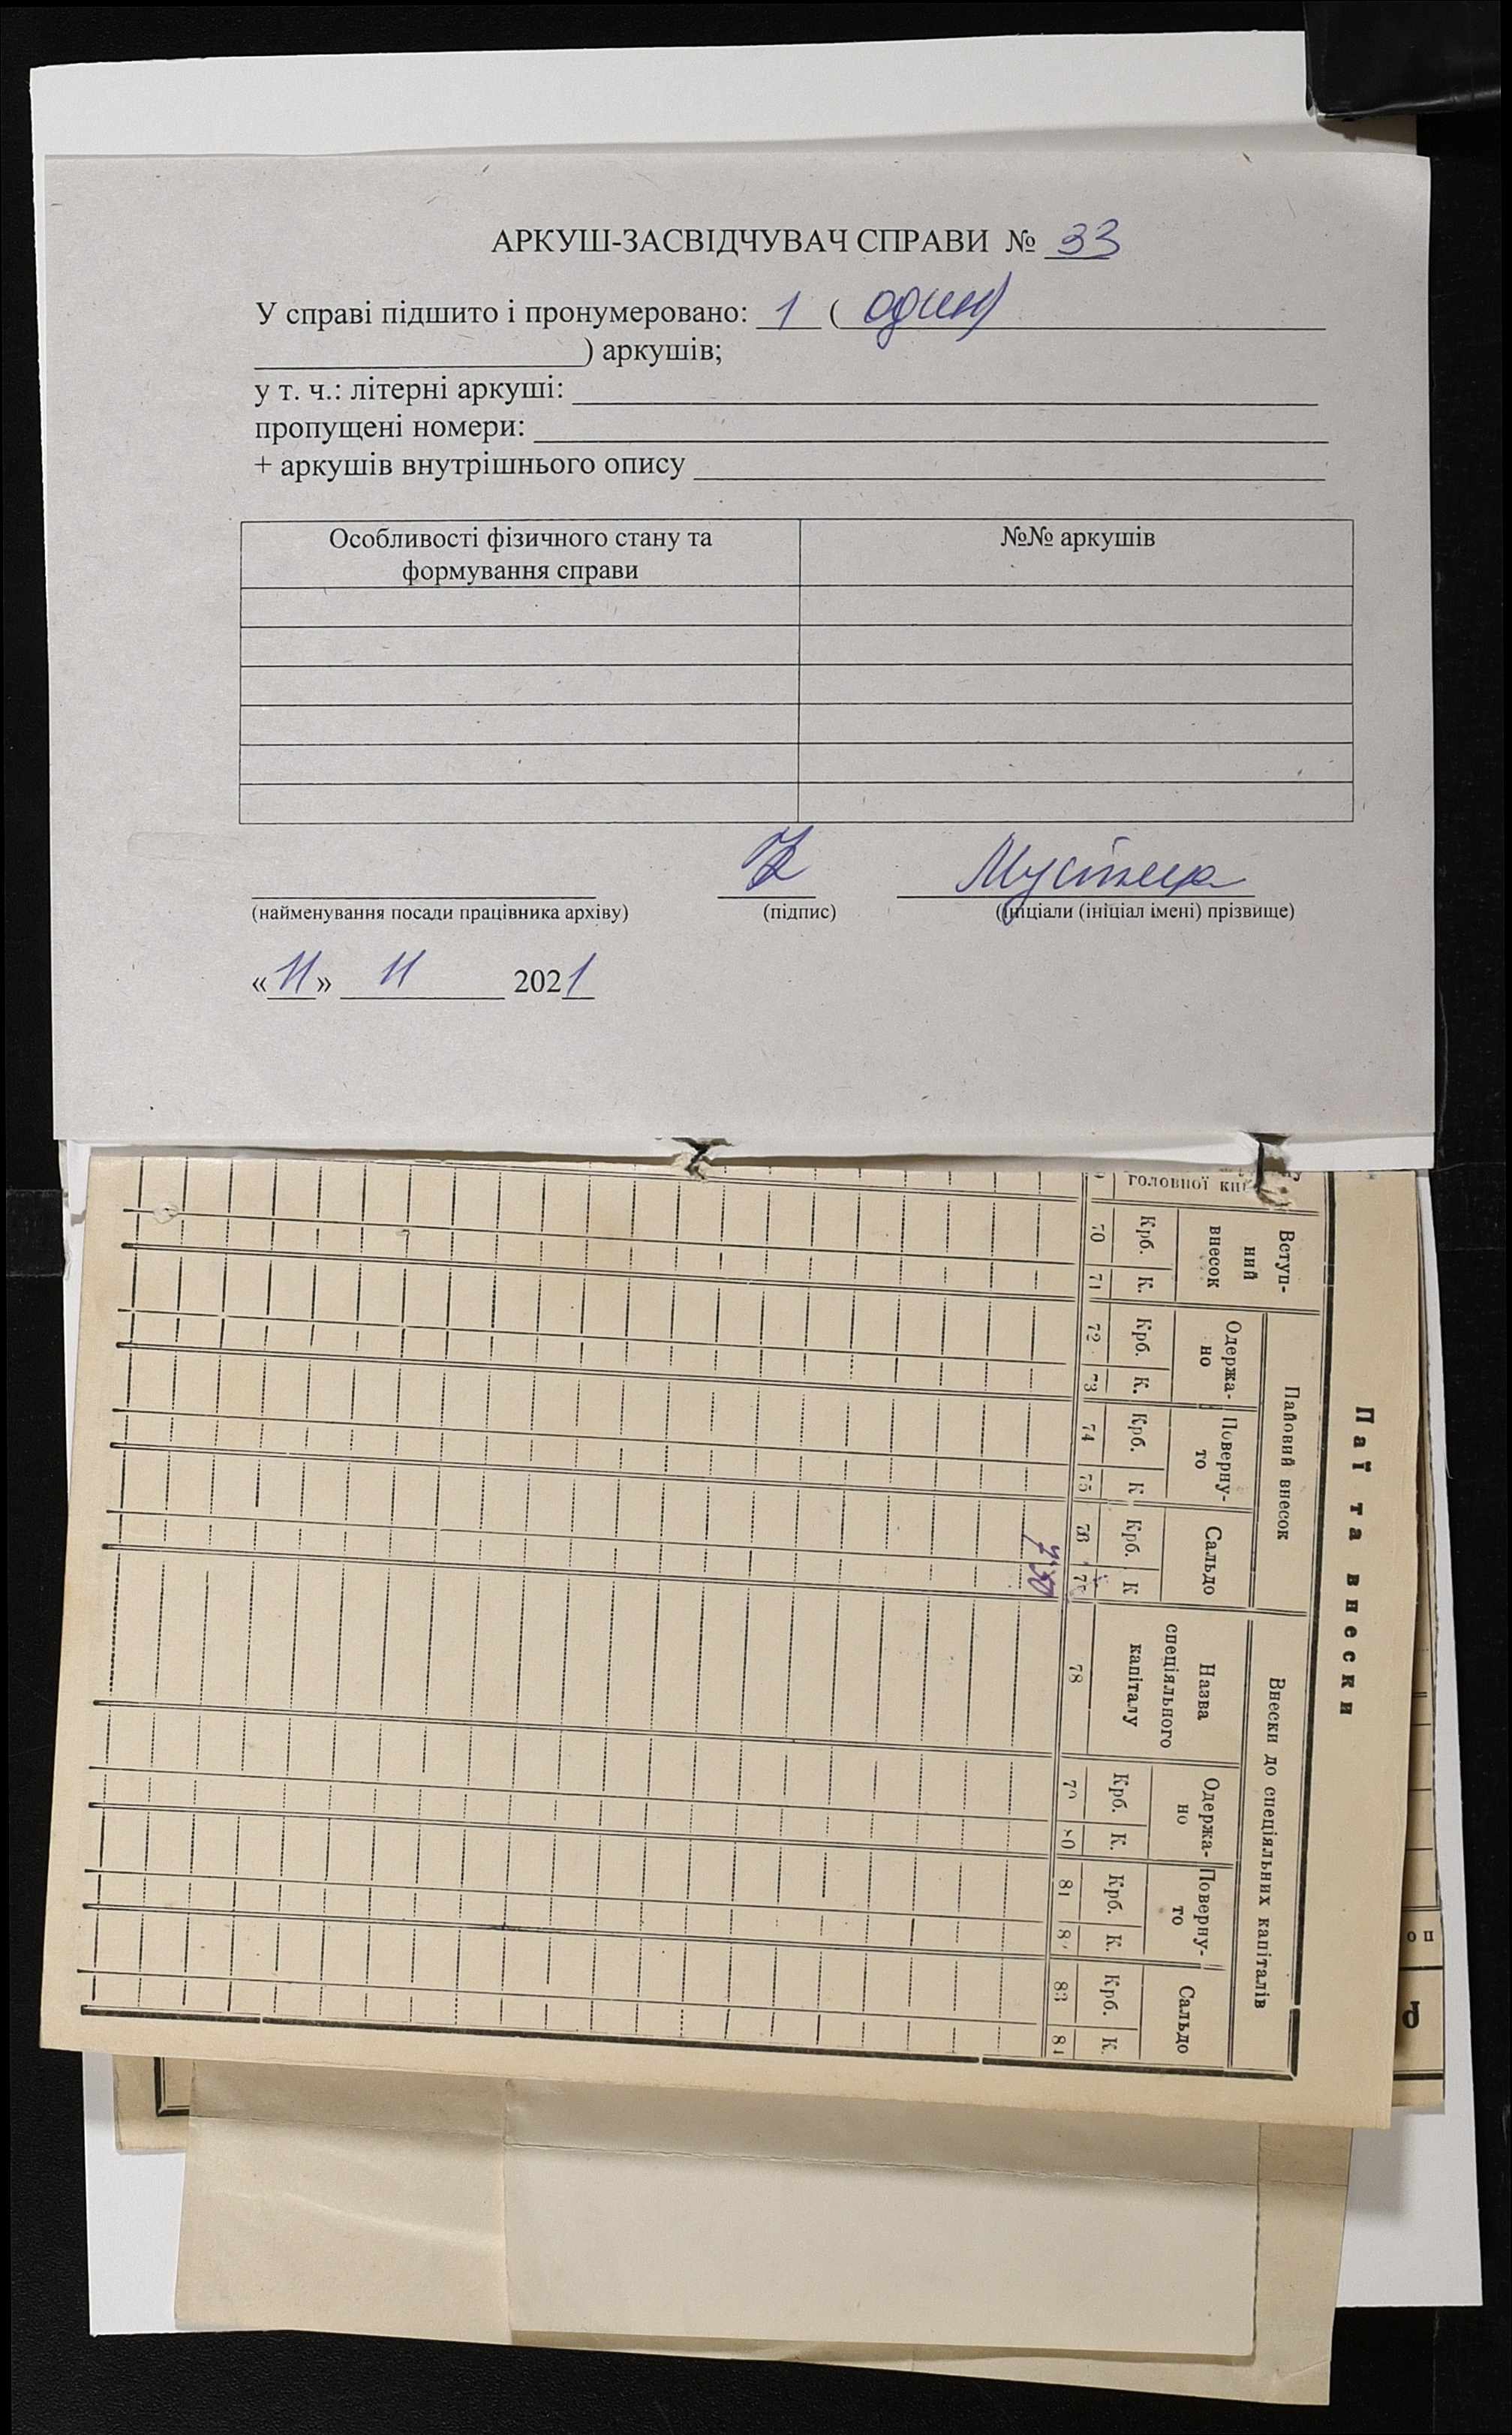 АРКУШ-ЗАСВІДЧУВАЧ СПРАВИ № 33
У справі підшито і пронумеровано: 1 ( один
) аркушів;
у т. ч.: літерні аркуші:
пропущені номери:
+ аркушів внутрішнього опису
Особливості фізичного стану та
формування справи
№№ аркушів
Мустеца
(найменування посади працівника архіву) (підпис) (ініціали (ініціал імені) прізвище)
«11» 11 2021
Паї та внески
головної
Вступ-
ний
внесок
Пайовий внесок
Внески до спеціяльних капіталів
Одержа-
но
Поверну-
то
Сальдо
Назва
спеціяльного
капіталу
Одержа-
но
Поверну-
то
Сальдо
Крб. К. Крб. К. Крб. К Крб. К Крб. К. Крб. К. Крб. К.
70 71 72 73 74 75 76 77 78 79 80 81 82 83 84